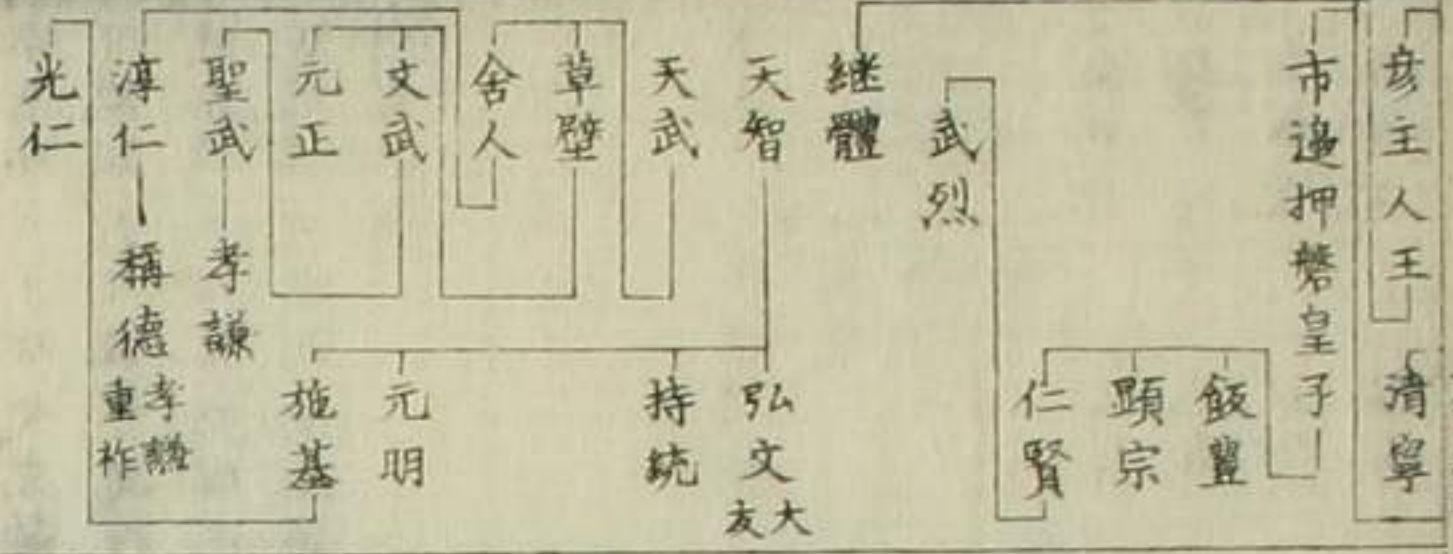 彦主人王
清寧
市邊押磐皇子
飯豐
顕宗
仁賢
武烈
継體
天智
弘文
大友
天武
持統
草壁
舍人
文武
元明
元正
施基
聖武
孝謙
淳仁
稱德
孝謙
重祚
光仁